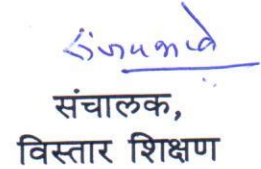 संचालक,
विस्तार शिक्षण